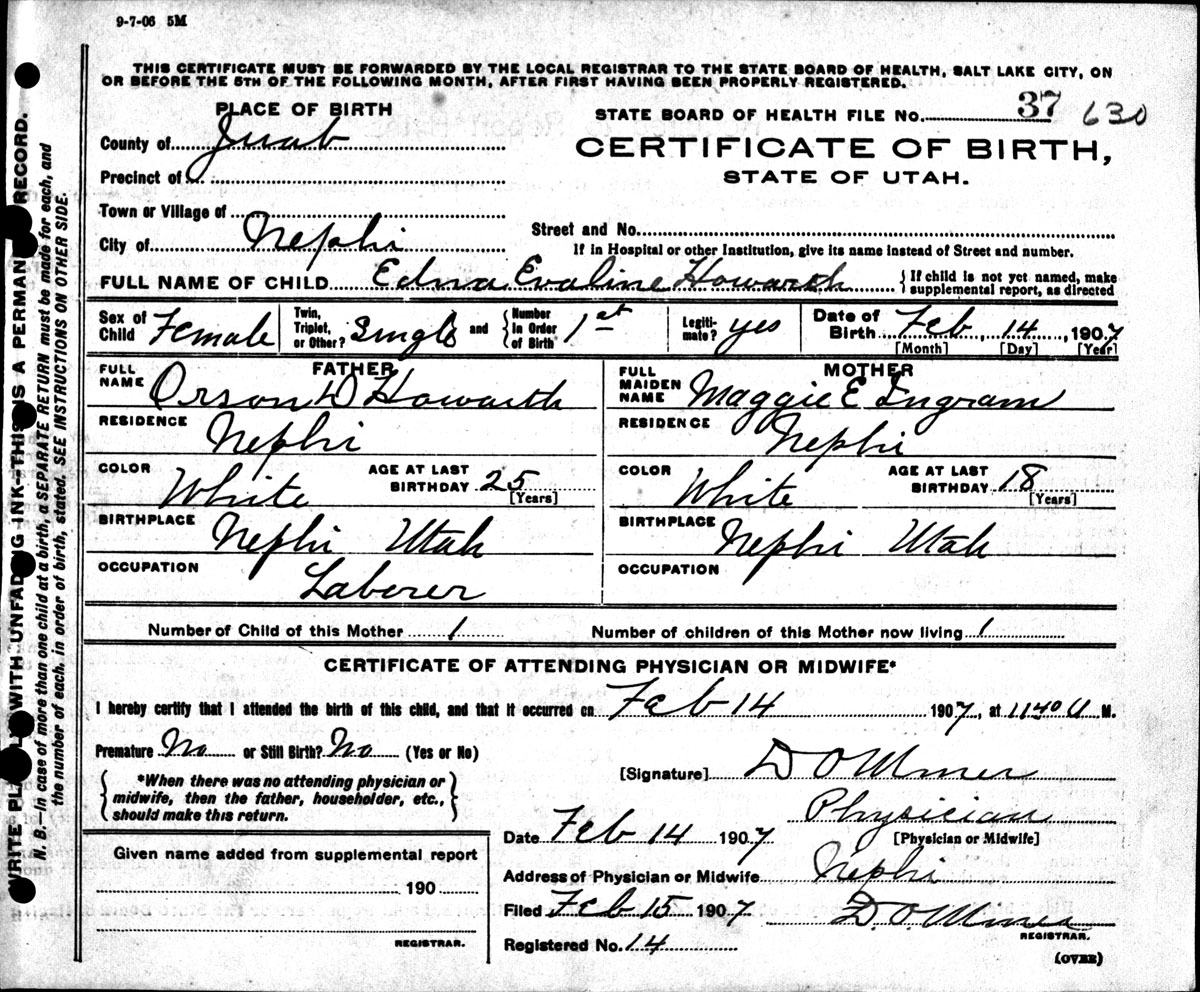 9-7-06 5M
THIS CERTIFICATE MUST BE FORWARDED BY THE LOCAL REGISTRAR TO THE STATE BOARD OF HEALTH, SALT LAKE CITY, ON
OR BEFORE THE 5TH OF THE FOLLOWING MONTH, AFTER FIRST HAVING BEEN PROPERLY REGISTERED.
PLACE OF BIRTH
STATE BOARD OF HEALTH FILE No. 37 630
County of Juab
CERTIFICATE OF BIRTH,
STATE OF UTAH.
Precinct of
Town or Village of
City of Nephi
Street and No.
If in Hospital or other Institution, give its name instead of Street and number.
FULL NAME OF CHILD Edna Evaline Howarth { If child is not yet named, make supplemental report, as directed
Sex of Child Female Twin, Triplet, or Other? Single and { Number in Order of Birth 1st Legitimate? yes Date of Birth Feb, 14, 1907
[Month] [Day] [Year]
FATHER
FULL NAME Orson D Howarth
RESIDENCE Nephi
COLOR White AGE AT LAST BIRTHDAY 25 [Years]
BIRTHPLACE Nephi Utah
OCCUPATION Laborer
MOTHER
FULL MAIDEN NAME Maggie E Ingram
RESIDENCE Nephi
COLOR White AGE AT LAST BIRTHDAY 18 [Years]
BIRTHPLACE Nephi Utah
OCCUPATION
Number of Child of this Mother 1 Number of children of this Mother now living 1
CERTIFICATE OF ATTENDING PHYSICIAN OR MIDWIFE*
I hereby certify that I attended the birth of this child, and that it occurred on Feb 14 1907, at 1140 M.
Premature No or Still Birth? No (Yes or No)
{ *When there was no attending physician or midwife, then the father, householder, etc., should make this return. }
[Signature] D O Miner
Physician
[Physician or Midwife]
Date Feb 14 1907
Address of Physician or Midwife Nephi
Filed Feb 15 1907 D. O. Miner
REGISTRAR.
Registered No. 14
(OVER)
Given name added from supplemental report
190
REGISTRAR.
WRITE PLAINLY WITH UNFADING INK—THIS IS A PERMANENT RECORD.
N. B.—In case of more than one child at a birth, a SEPARATE RETURN must be made for each, and
the number of each, in order of birth, stated. SEE INSTRUCTIONS ON OTHER SIDE.